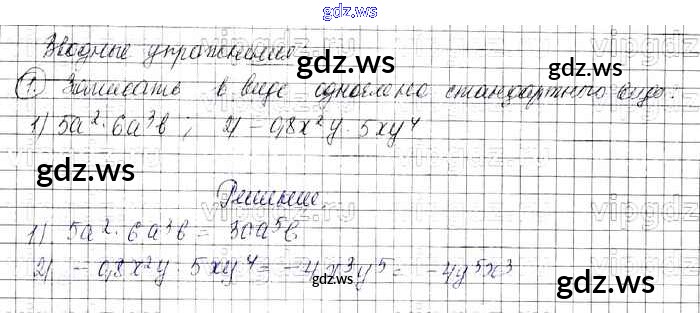 gdz.ws
Вводные упражнения:
gdz.ws gdz.ws
1. Записать в виде одночлена стандартного вида:
1) 5a²·6a³b; 2) -0,8x²y·5xy⁴
gdz.ws gdz.ws
Решение.
vipgdz.ru
1) 5a²·6a³b = 30a⁵b
2) -0,8x²y·5xy⁴ = -4x³y⁵ = -4y⁵x³
gdz.ws gdz.ws